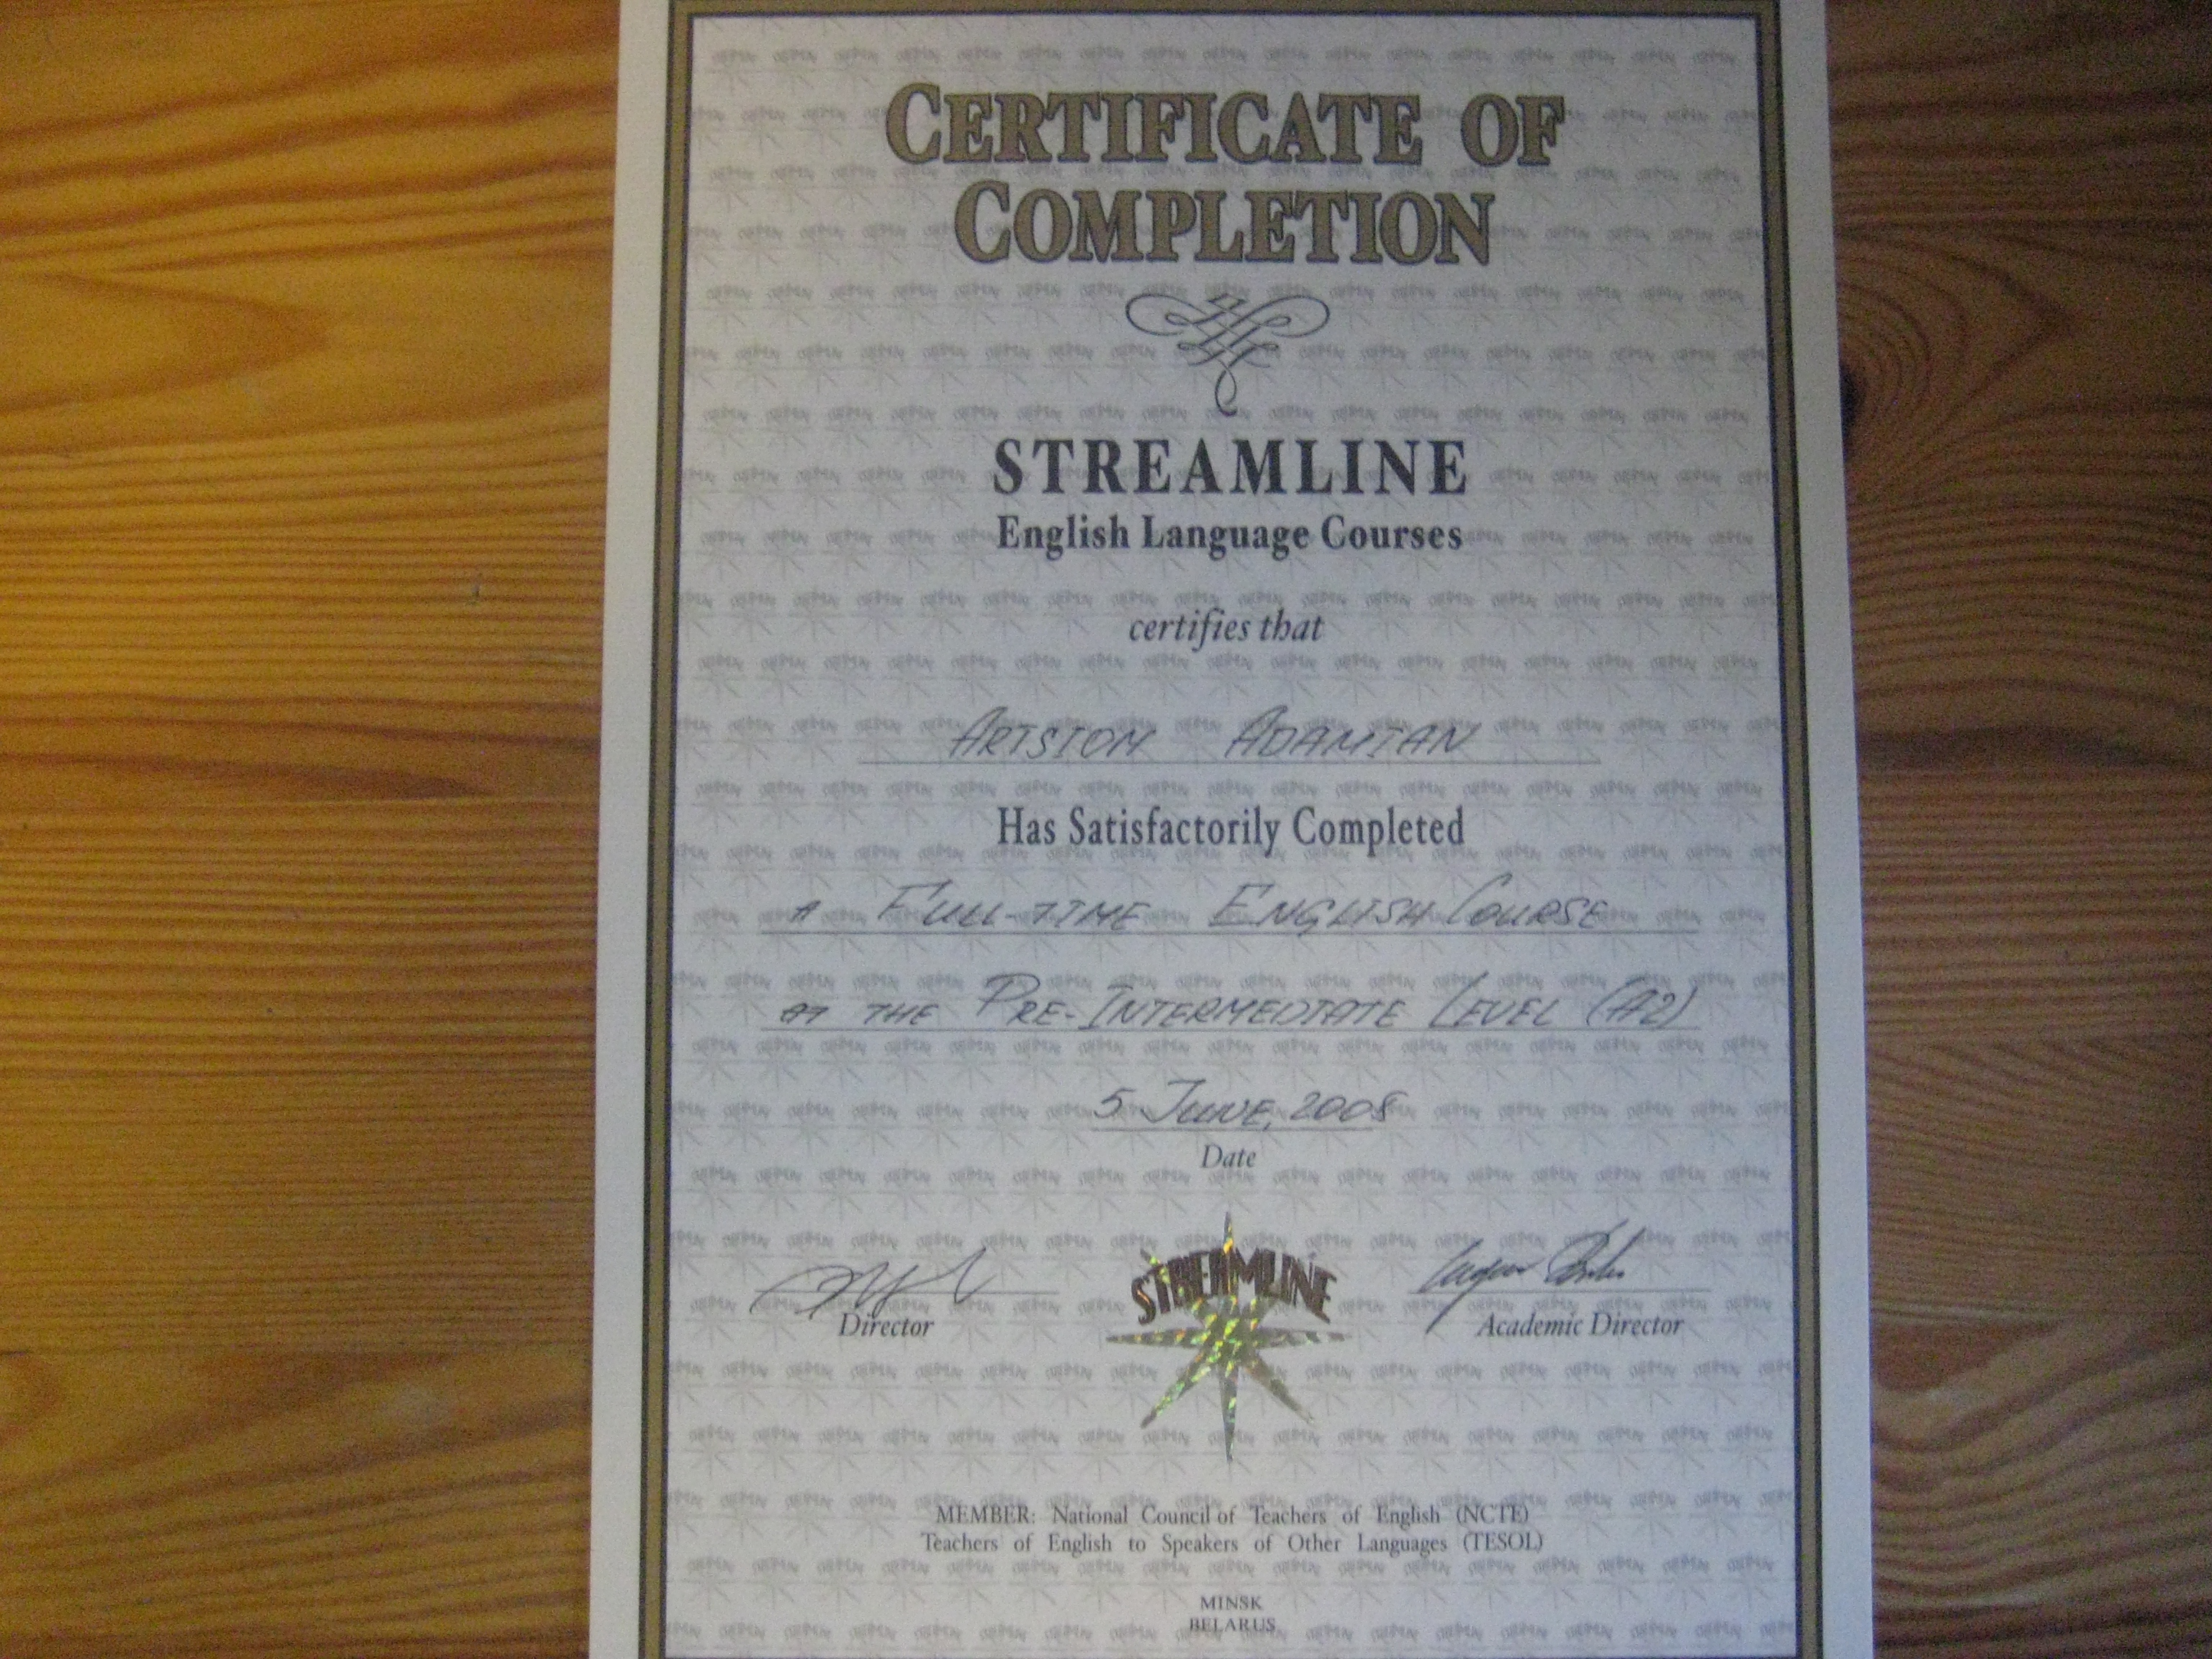 CERTIFICATE OF
COMPLETION
STREAMLINE
English Language Courses
certifies that
ARTSIOM ADAMIAN
Has Satisfactorily Completed
A FULL-TIME ENGLISH COURSE
AT THE PRE-INTERMEDIATE LEVEL (A2)
5 JUNE, 2008
Date
STREAMLINE
Director
Academic Director
MEMBER: National Council of Teachers of English (NCTE)
Teachers of English to Speakers of Other Languages (TESOL)
MINSK
BELARUS